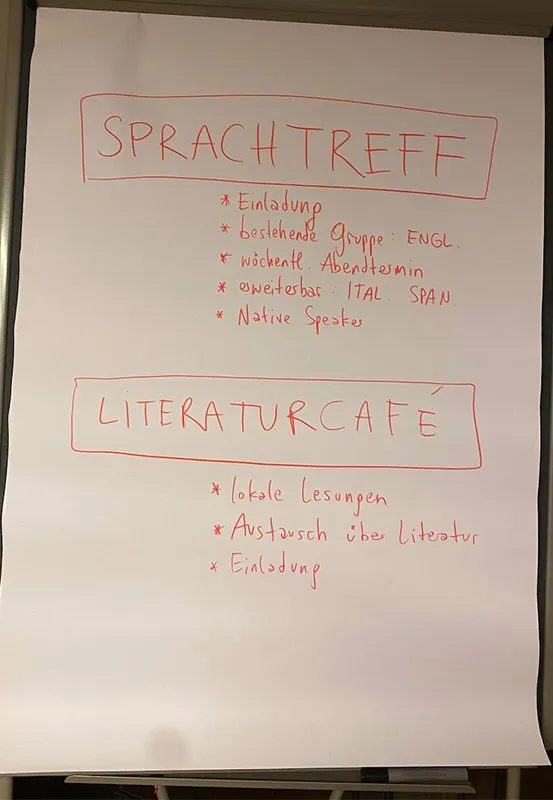 SPRACHTREFF
* Einladung
* bestehende Gruppe: ENGL.
* wöchentl. Abendtermin
* erweiterbar: ITAL. SPAN.
* Native Speaker
LITERATURCAFÉ
* lokale Lesungen
* Austausch über Literatur
* Einladung